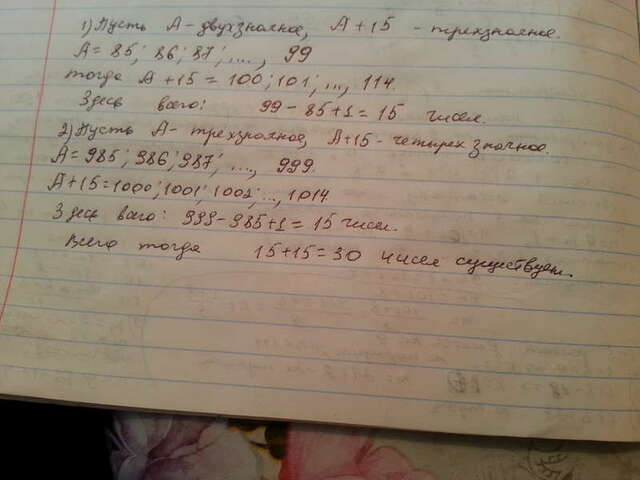 1) Пусть А - двузначное, А + 15 - трехзначное.
А = 85; 86; 87; ...., 99
тогда А + 15 = 100; 101; ..., 114.
Здесь всего: 99 - 85 + 1 = 15 чисел.
2) Пусть А - трехзначное, А+15 - четырехзначное.
А = 985; 986; 987; ...., 999.
А + 15 = 1000; 1001; 1002; ..., 1014
Здесь всего: 999 - 985 + 1 = 15 чисел.
Всего тогда 15 + 15 = 30 чисел существует.